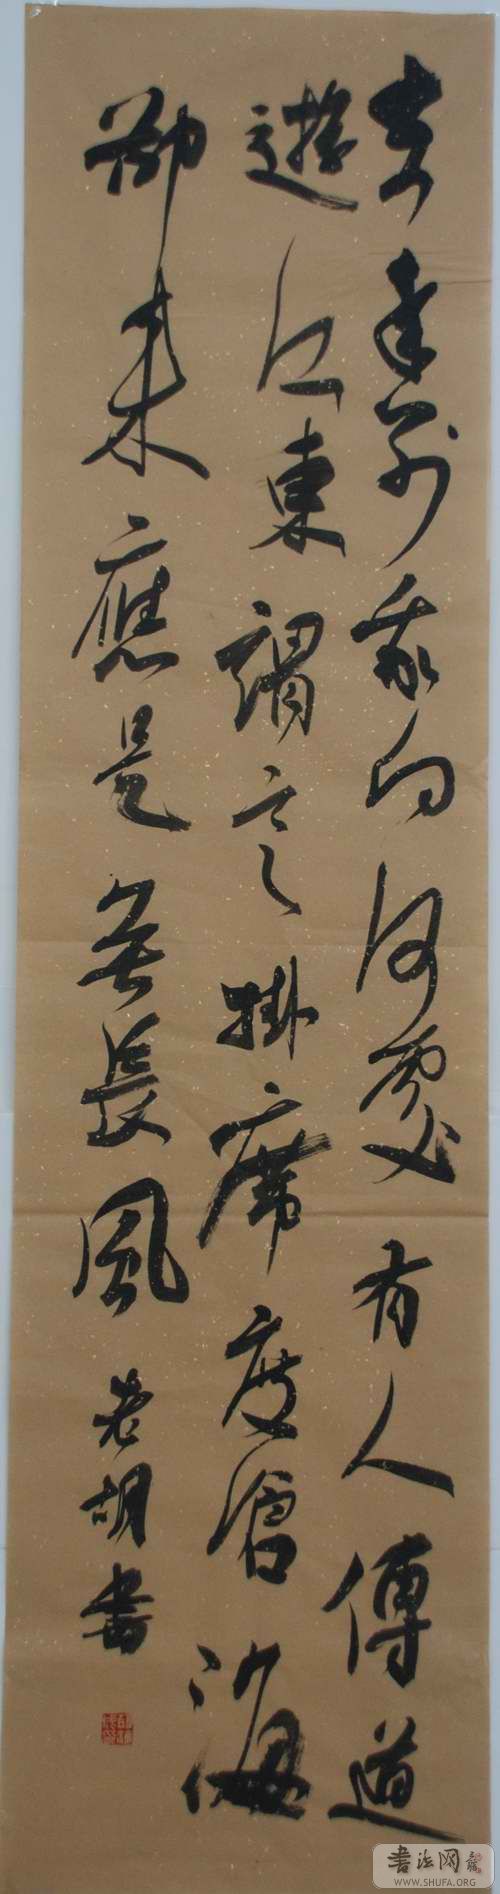 去年别我向何處有人傳道
遊江東謂言掛席度滄海
却来應是無長風 老胡書
書法网
WWW.SHUFA.ORG